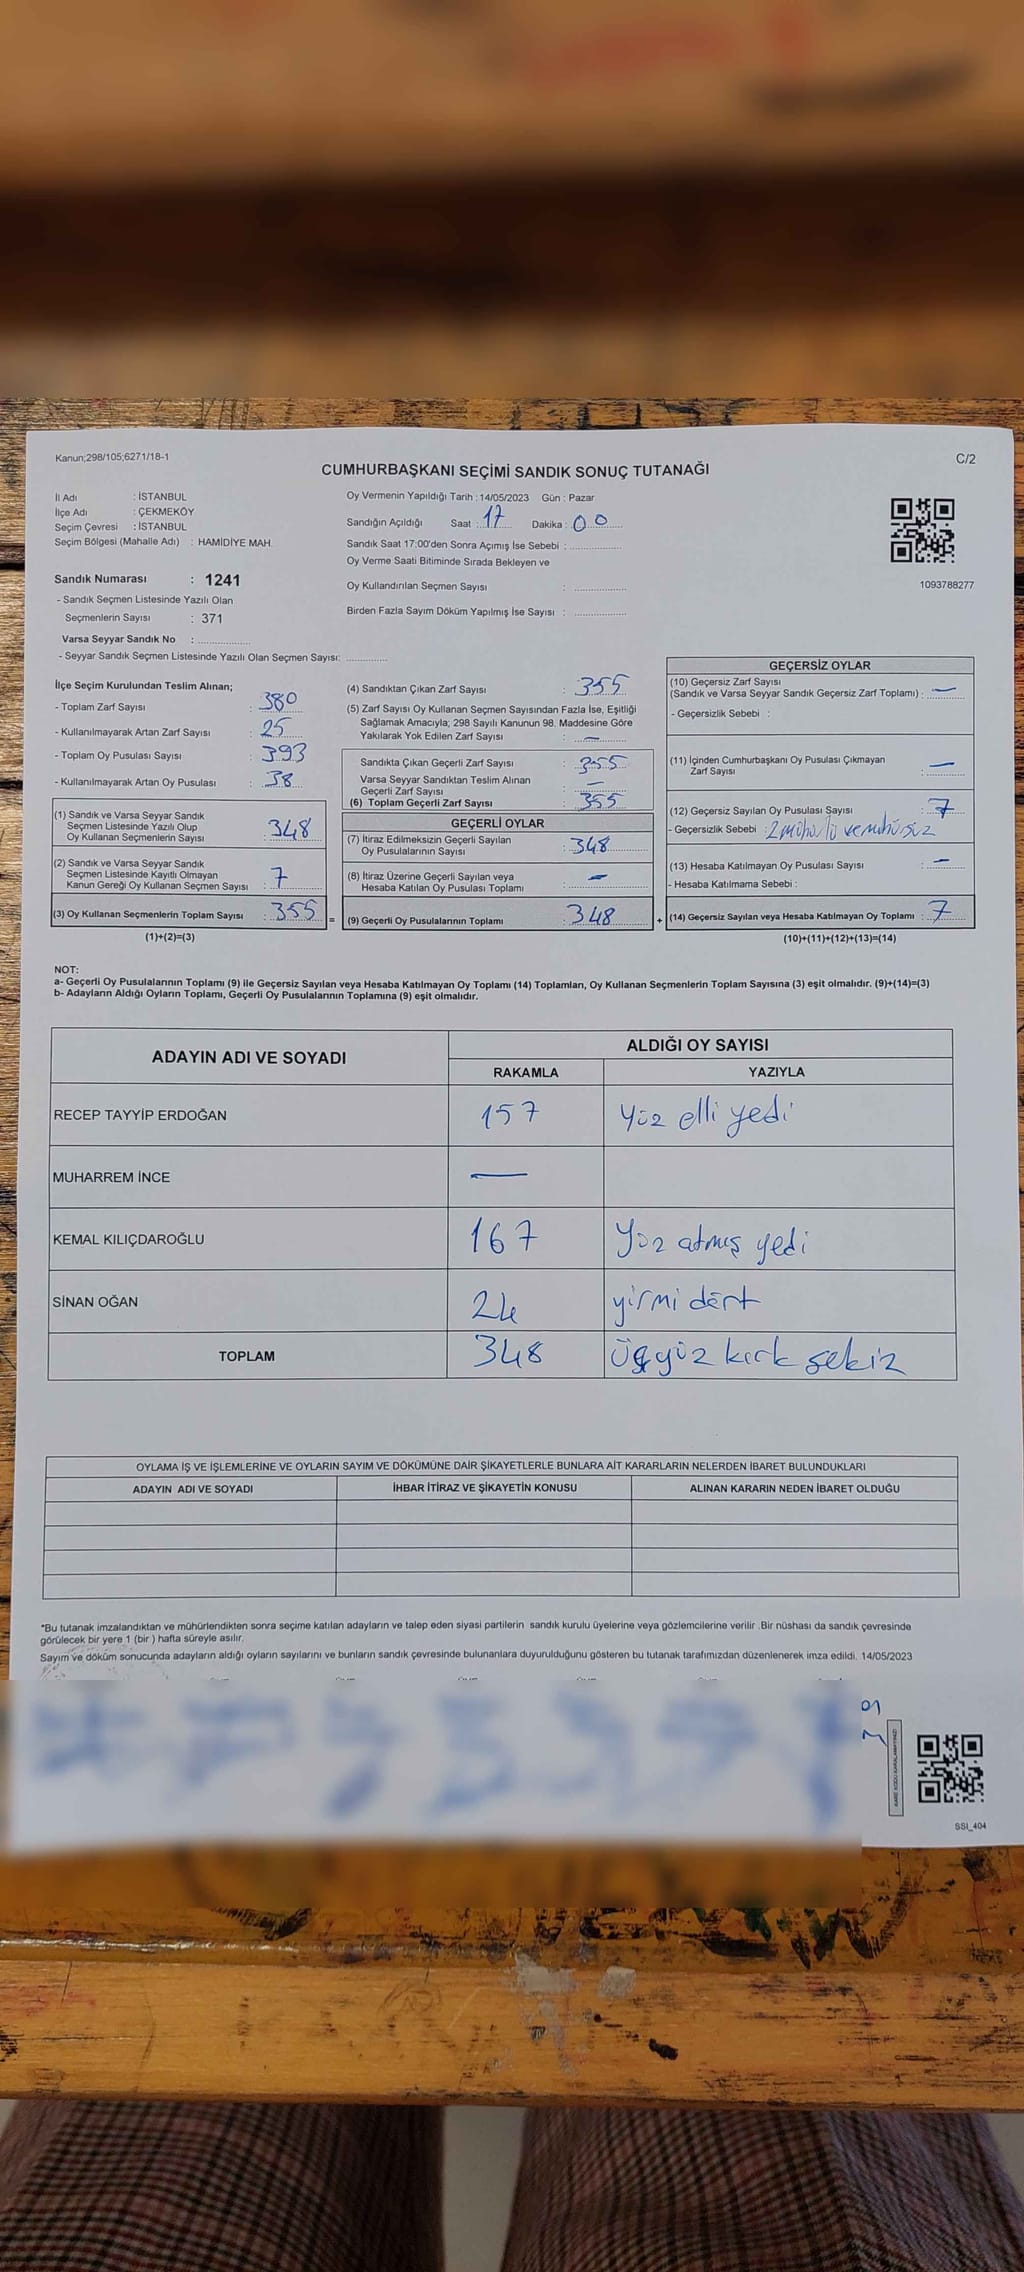 Kanun;298/105;6271/18-1
C/2
CUMHURBAŞKANI SEÇİMİ SANDIK SONUÇ TUTANAĞI
İl Adı : İSTANBUL
İlçe Adı : ÇEKMEKÖY
Seçim Çevresi : İSTANBUL
Seçim Bölgesi (Mahalle Adı) : HAMİDİYE MAH.
Sandık Numarası : 1241
- Sandık Seçmen Listesinde Yazılı Olan
Seçmenlerin Sayısı : 371
Varsa Seyyar Sandık No :
- Seyyar Sandık Seçmen Listesinde Yazılı Olan Seçmen Sayısı:
Oy Vermenin Yapıldığı Tarih : 14/05/2023 Gün : Pazar
Sandığın Açıldığı Saat : 17 Dakika : 00
Sandık Saat 17:00'den Sonra Açımış İse Sebebi :
Oy Verme Saati Bitiminde Sırada Bekleyen ve
Oy Kullandırılan Seçmen Sayısı :
Birden Fazla Sayım Döküm Yapılmış İse Sayısı :
1093788277
İlçe Seçim Kurulundan Teslim Alınan;
- Toplam Zarf Sayısı : 380
- Kullanılmayarak Artan Zarf Sayısı : 25
- Toplam Oy Pusulası Sayısı : 393
- Kullanılmayarak Artan Oy Pusulası : 38
(1) Sandık ve Varsa Seyyar Sandık
Seçmen Listesinde Yazılı Olup
Oy Kullanan Seçmenlerin Sayısı : 348
(2) Sandık ve Varsa Seyyar Sandık
Seçmen Listesinde Kayıtlı Olmayan
Kanun Gereği Oy Kullanan Seçmen Sayısı : 7
(3) Oy Kullanan Seçmenlerin Toplam Sayısı : 355 =
(1)+(2)=(3)
(4) Sandıktan Çıkan Zarf Sayısı : 355
(5) Zarf Sayısı Oy Kullanan Seçmen Sayısından Fazla İse, Eşitliği
Sağlamak Amacıyla; 298 Sayılı Kanunun 98. Maddesine Göre
Yakılarak Yok Edilen Zarf Sayısı : —
Sandıkta Çıkan Geçerli Zarf Sayısı : 355
Varsa Seyyar Sandıktan Teslim Alınan
Geçerli Zarf Sayısı : —
(6) Toplam Geçerli Zarf Sayısı : 355
GEÇERLİ OYLAR
(7) İtiraz Edilmeksizin Geçerli Sayılan
Oy Pusulalarının Sayısı : 348
(8) İtiraz Üzerine Geçerli Sayılan veya
Hesaba Katılan Oy Pusulası Toplamı : —
(9) Geçerli Oy Pusulalarının Toplamı : 348 +
GEÇERSİZ OYLAR
(10) Geçersiz Zarf Sayısı
(Sandık ve Varsa Seyyar Sandık Geçersiz Zarf Toplamı) : —
- Geçersizlik Sebebi :
(11) İçinden Cumhurbaşkanı Oy Pusulası Çıkmayan
Zarf Sayısı : —
(12) Geçersiz Sayılan Oy Pusulası Sayısı : 7
- Geçersizlik Sebebi : 2 mühürlü ve mühürsüz
(13) Hesaba Katılmayan Oy Pusulası Sayısı : —
- Hesaba Katılmama Sebebi :
(14) Geçersiz Sayılan veya Hesaba Katılmayan Oy Toplamı : 7
(10)+(11)+(12)+(13)=(14)
NOT:
a- Geçerli Oy Pusulalarının Toplamı (9) ile Geçersiz Sayılan veya Hesaba Katılmayan Oy Toplamı (14) Toplamları, Oy Kullanan Seçmenlerin Toplam Sayısına (3) eşit olmalıdır. (9)+(14)=(3)
b- Adayların Aldığı Oyların Toplamı, Geçerli Oy Pusulalarının Toplamına (9) eşit olmalıdır.
ADAYIN ADI VE SOYADI
ALDIĞI OY SAYISI
RAKAMLA YAZIYLA
RECEP TAYYİP ERDOĞAN 157 Yüz elli yedi
MUHARREM İNCE —
KEMAL KILIÇDAROĞLU 167 Yüz atmış yedi
SİNAN OĞAN 24 yirmi dört
TOPLAM 348 üçyüz kırk sekiz
OYLAMA İŞ VE İŞLEMLERİNE VE OYLARIN SAYIM VE DÖKÜMÜNE DAİR ŞİKAYETLERLE BUNLARA AİT KARARLARIN NELERDEN İBARET BULUNDUKLARI
ADAYIN ADI VE SOYADI İHBAR İTİRAZ VE ŞİKAYETİN KONUSU ALINAN KARARIN NEDEN İBARET OLDUĞU
*Bu tutanak imzalandıktan ve mühürlendikten sonra seçime katılan adayların ve talep eden siyasi partilerin sandık kurulu üyelerine veya gözlemcilerine verilir .Bir nüshası da sandık çevresinde
görülecek bir yere 1 (bir ) hafta süreyle asılır.
Sayım ve döküm sonucunda adayların aldığı oyların sayılarını ve bunların sandık çevresinde bulunanlara duyurulduğunu gösteren bu tutanak tarafımızdan düzenlenerek imza edildi. 14/05/2023
SSI_404